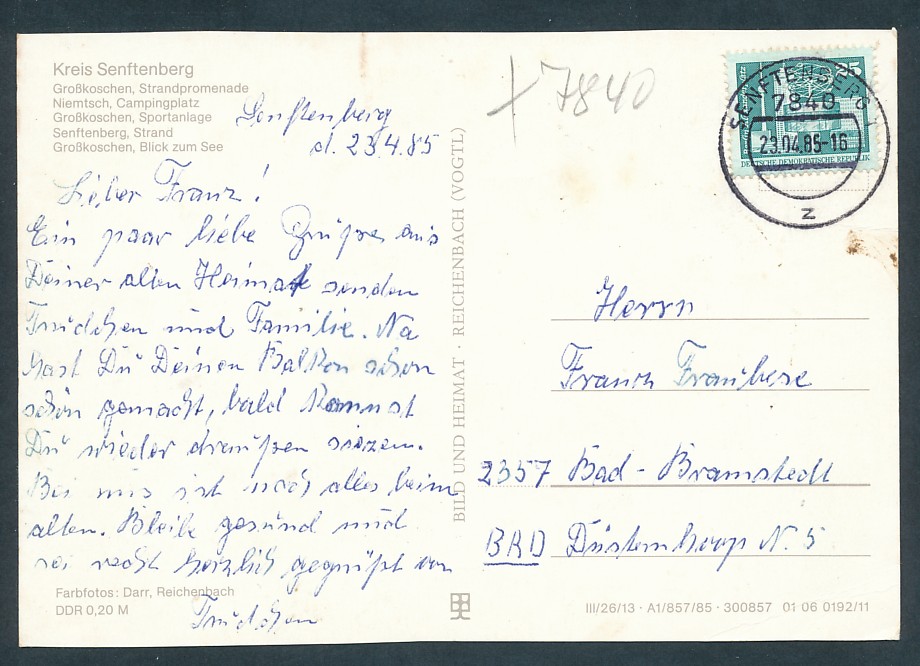 Kreis Senftenberg
Großkoschen, Strandpromenade
Niemtsch, Campingplatz
Großkoschen, Sportanlage
Senftenberg, Strand
Großkoschen, Blick zum See
Senftenberg
d. 23.4.85
Lieber Franz!
Ein paar liebe Grüße aus
Deiner alten Heimat senden
Trudchen und Familie. Na
hast Du Deinen Balkon schon
schön gemacht, bald kannst
Du wieder draußen sitzen.
Bei uns ist noch alles beim
alten. Bleib gesund und
sei recht herzlich gegrüßt von
Trudchen
Farbfotos: Darr, Reichenbach
DDR 0,20 M
BILD UND HEIMAT · REICHENBACH (VOGTL)
+ 7840
SENFTENBERG 1
7840
23.04.85-16
z
25
DEUTSCHE DEMOKRATISCHE REPUBLIK
Herrn
Franz
2357 Bad-Bramstedt
BRD Düsternhoop N. 5
III/26/13 · A1/857/85 · 300857 01 06 0192/11